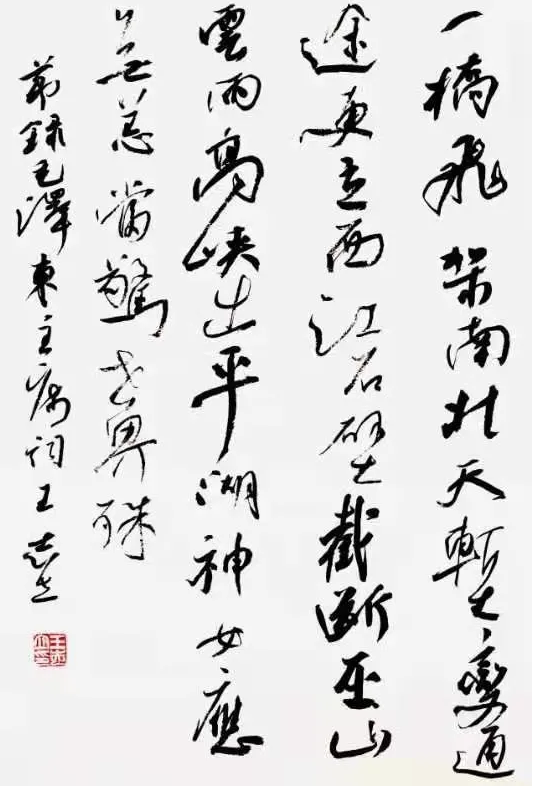 一橋飛架南北天塹變通
途更立西江石壁截斷巫山
雲雨高峽出平湖神女應
無恙當驚世界殊
節錄毛澤東主席詞王志